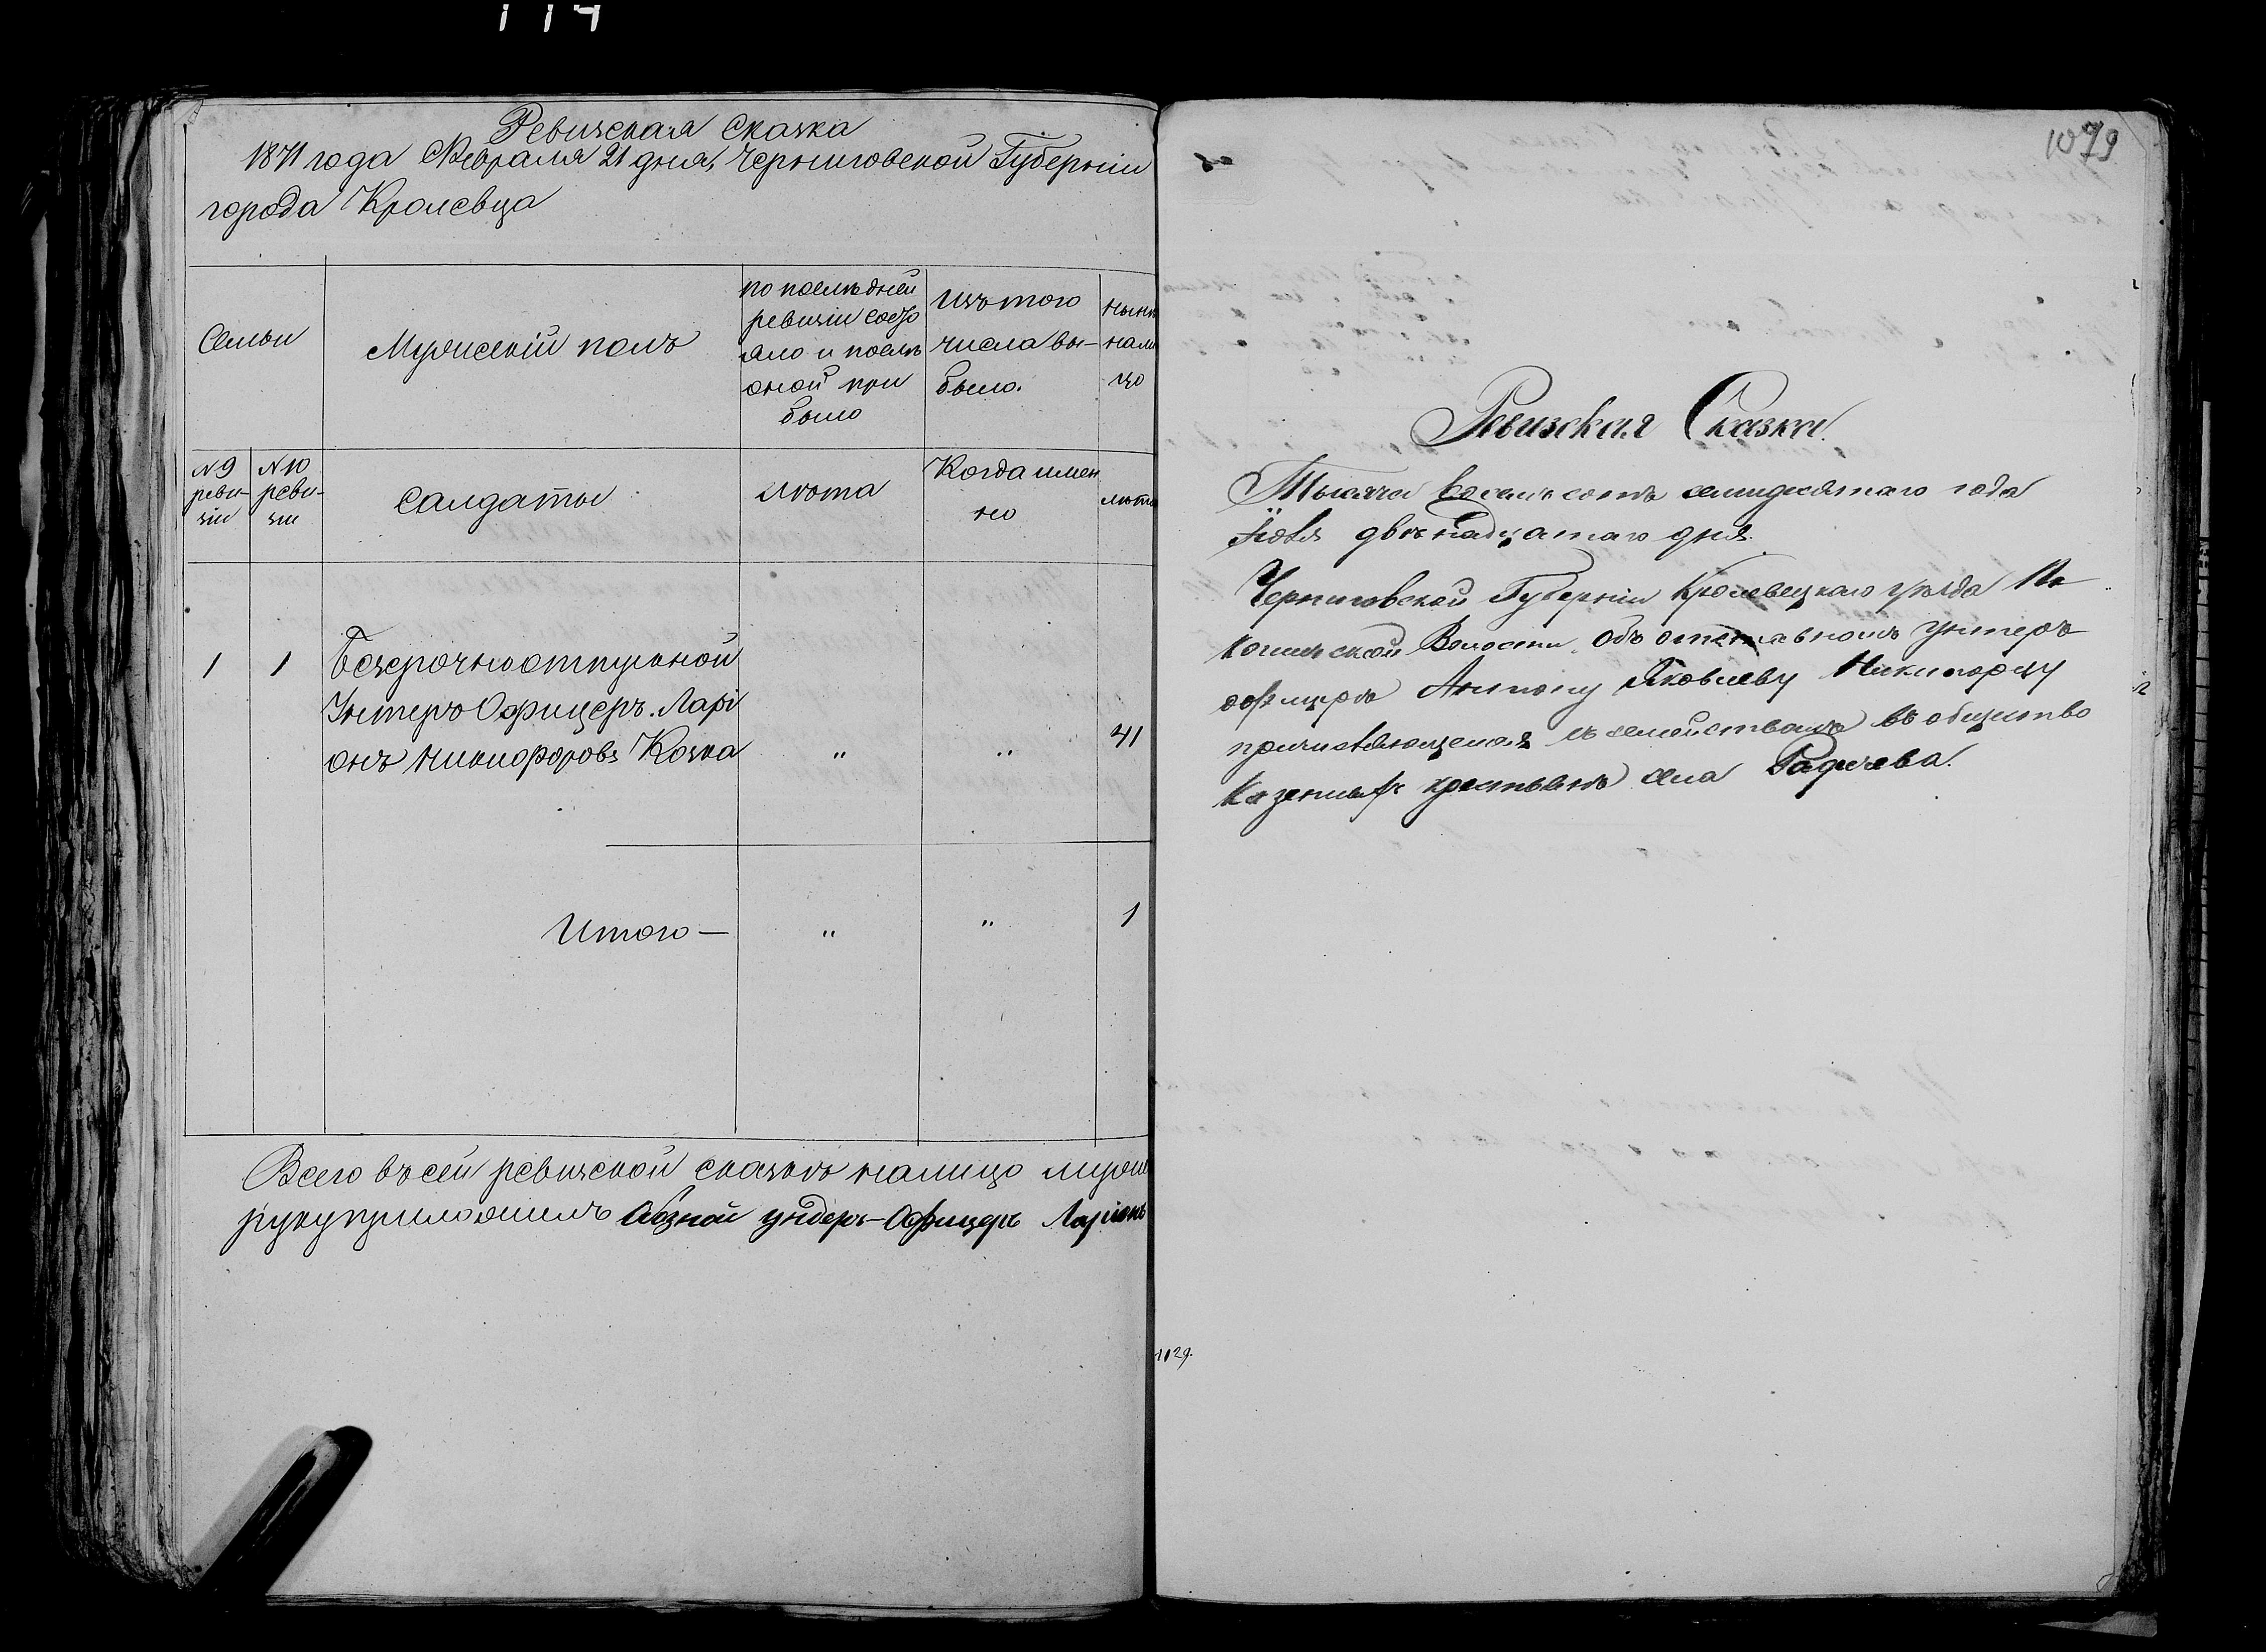 114
Ревизская Сказка
1871 года Февраля 21 дня, Черниговской Губерніи
города Кролевца
Семьи
Мужескій полъ
по послѣдней
ревизіи состо
яло и послѣ
оной при
было
Изъ того
числа вы-
было.
нынѣ
нали
цо
N 9
реви-
зіи
N 10
реви-
зіи
Салдаты
Лѣта
Когда имен
но
лѣта
1 1 Безсрочноотпускной
Унтеръ Офицеръ. Ларі
онъ Никифоровъ Козка " " 41
Итого — " " 1
Всего въ сей ревизской сказкѣ налицо
руку приложилъ ундеръ-Офицеръ Ларионъ
1079
Ревизская Сказка.
Тысяча восемь сотъ семидесятаго года
двѣнадцатаго дня.
Черниговской Губерніи Кролевецкаго уѣзда
Волости. Объ отставномъ унтеръ
офицерѣ Антону Яковлеву
причисляющемся съ семействомъ въ общество
Казенныхъ крестьянъ села Радичева.
1029.